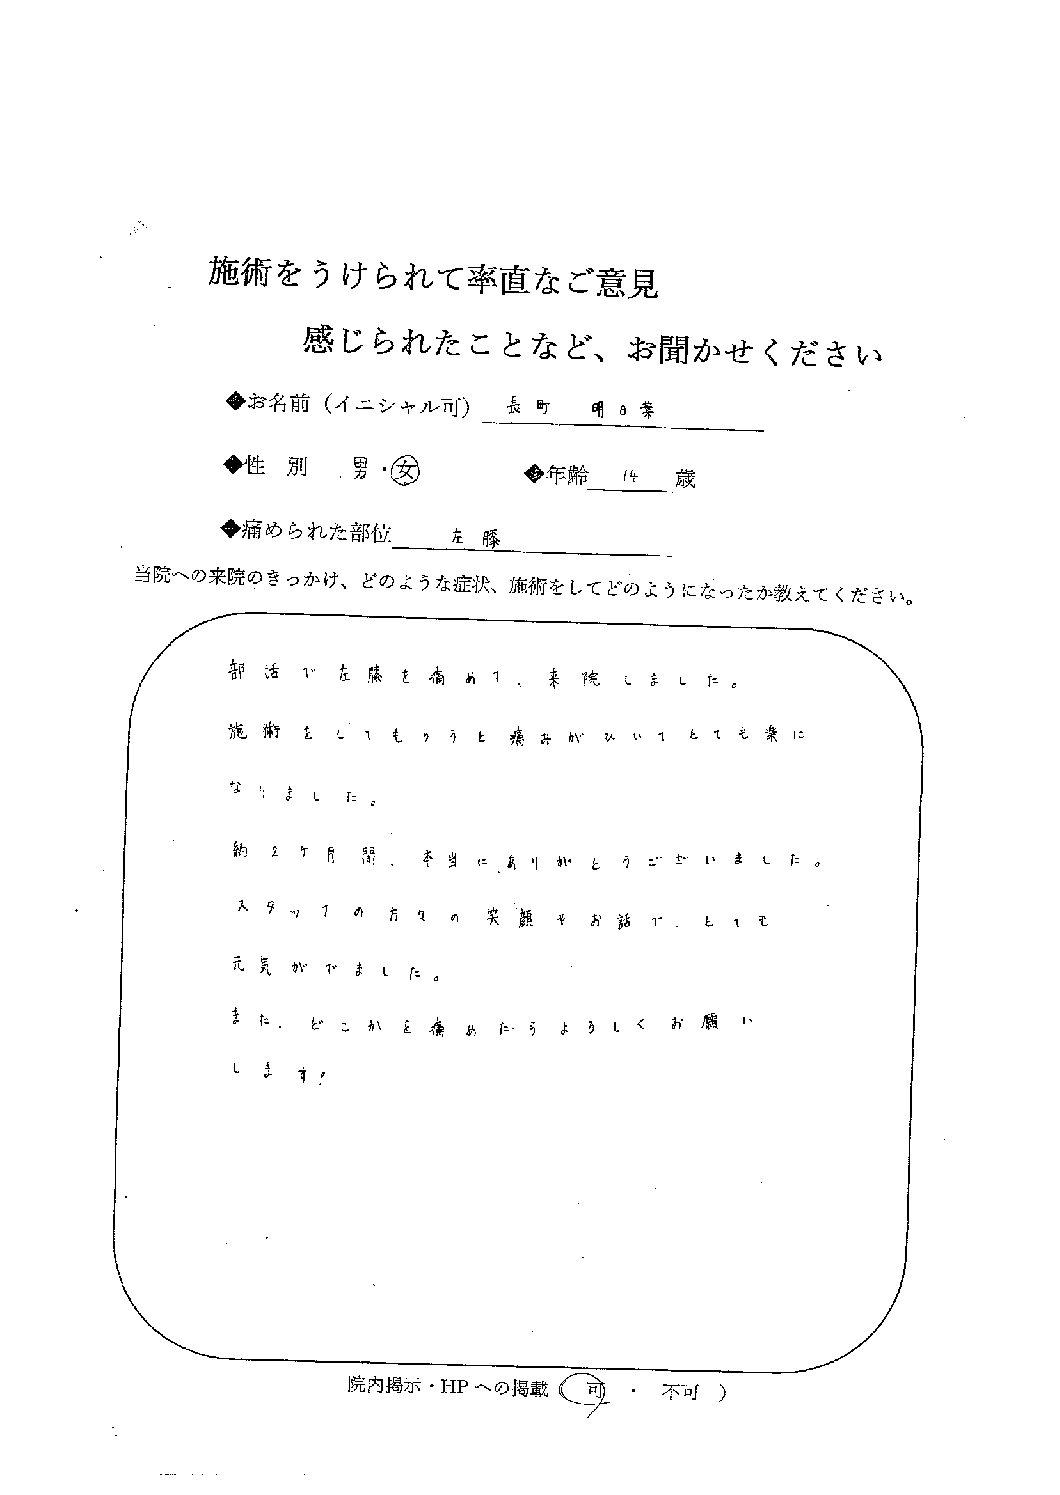 施術をうけられて率直なご意見
感じられたことなど、お聞かせください
◆お名前（イニシャル可） 長町 明日葉
◆性 別 男・女 ◆年齢 14 歳
◆痛められた部位 左膝
当院への来院のきっかけ、どのような症状、施術をしてどのようになったか教えてください。
部活で左膝を痛めて、来院しました。
施術をしてもらうと痛みがひいてとても楽に
なりました。
約2ヶ月間、本当にありがとうございました。
スタッフの方々の笑顔やお話で、とても
元気がでました。
また、どこかを痛めたらよろしくお願い
します!
院内掲示・HPへの掲載（可 ・ 不可 ）